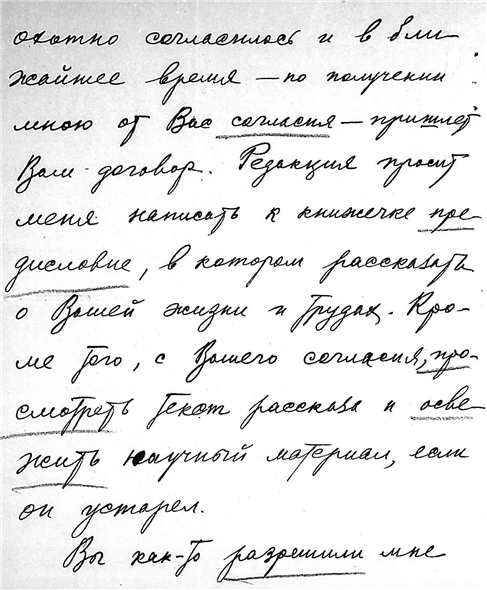 охотно согласилось и в бли-
жайшее время — по получении
мною от Вас согласия — пришлёт
Вам договор. Редакция просит
меня написать к книжечке пре-
дисловие, в котором рассказать
о Вашей жизни и трудах. Кро-
ме того, с Вашего согласия, про-
смотреть текст рассказа и осве-
жить научный материал, если
он устарел.
Вы как-то разрешили мне